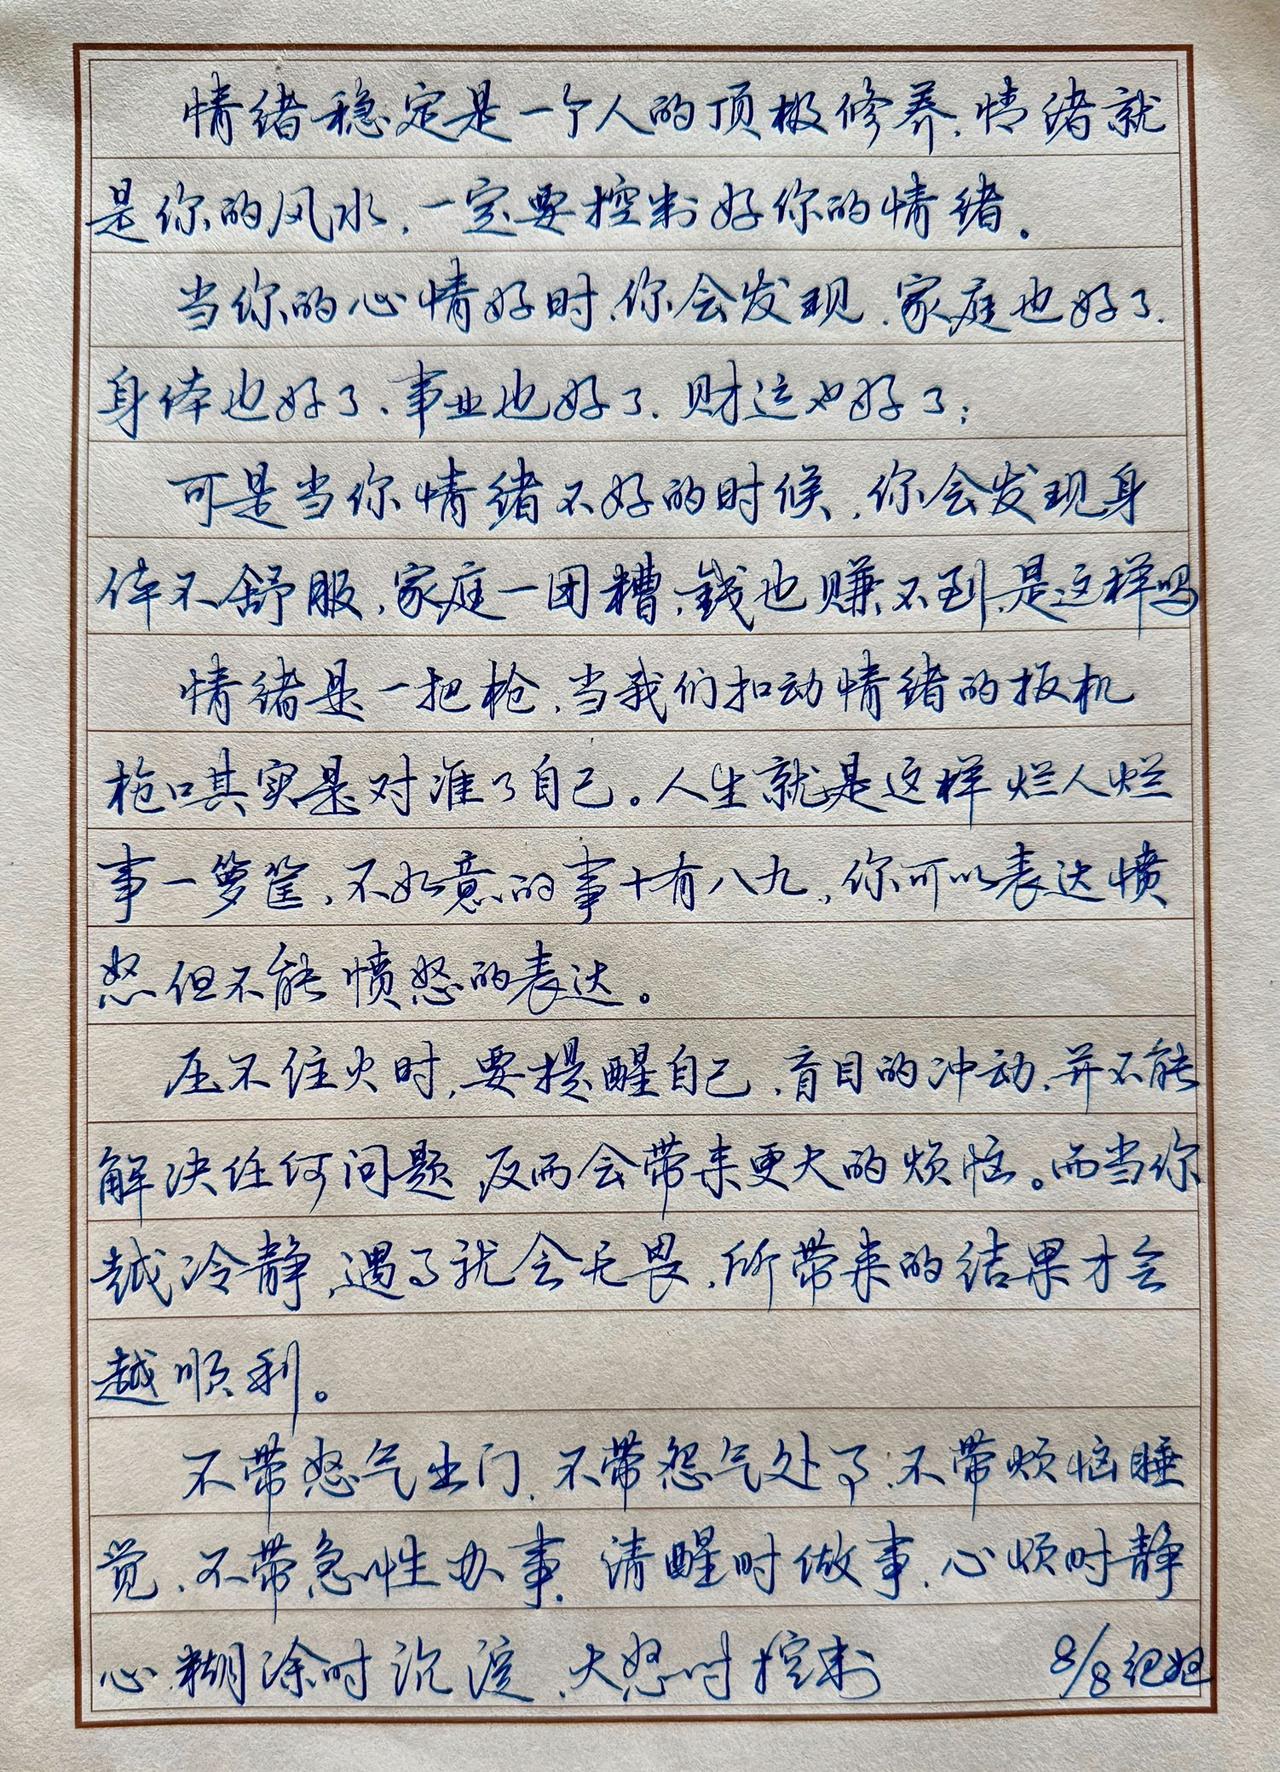 情绪稳定是一个人的顶极修养,情绪就
是你的风水,一定要控制好你的情绪。
当你的心情好时,你会发现,家庭也好了,
身体也好了、事业也好了,财运也好了;
可是当你情绪不好的时候,你会发现身
体不舒服,家庭一团糟,钱也赚不到,是这样吗
情绪是一把枪,当我们扣动情绪的扳机
枪口其实是对准了自己。人生就是这样烂人烂
事一箩筐,不如意的事十有八九,你可以表达愤
怒但不能愤怒的表达。
压不住火时,要提醒自己,盲目的冲动,并不能
解决任何问题,反而会带来更大的烦恼。而当你
越冷静,遇了就会无畏,所带来的结果才会
越顺利。
不带怒气出门,不带怨气处了,不带烦恼睡
觉,不带急性办事,清醒时做事,心烦时静
心,糊涂时沉淀,大怒时控制 8/8